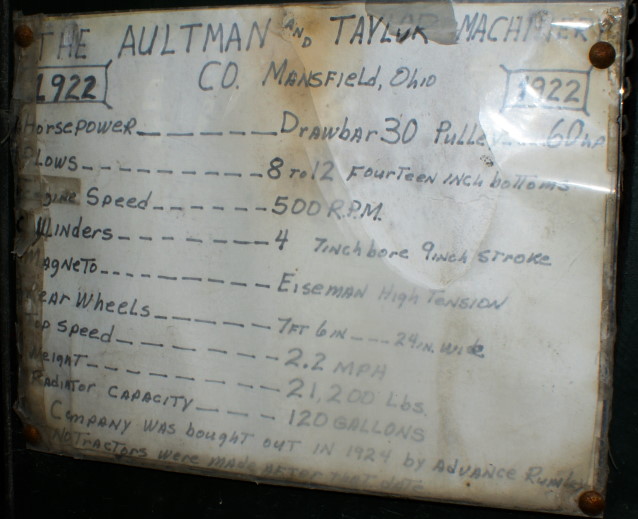 THE AULTMAN AND TAYLOR MACHINERY
1922 CO. MANSFIELD, OHIO 1922
HORSEPOWER------DRAWBAR 30 PULLEY 60 HP
PLOWS------8 TO 12 FOURTEEN INCH bottoms
Engine Speed------500 R.P.M.
CYLINDERS------4 7inch bore 9inch STROKE
MAGNETO------EISEMAN HIGH TENSION
Rear Wheels------7 FT 6 IN----24 IN. WIDE
Top Speed------2.2 MPH
Weight------21,200 Lbs.
RADIATOR CAPACITY------120 GALLONS
COMPANY WAS bought OUT IN 1924 by ADVANCE Rumley
NO TRACTORS WERE MADE AFTER THAT DATE